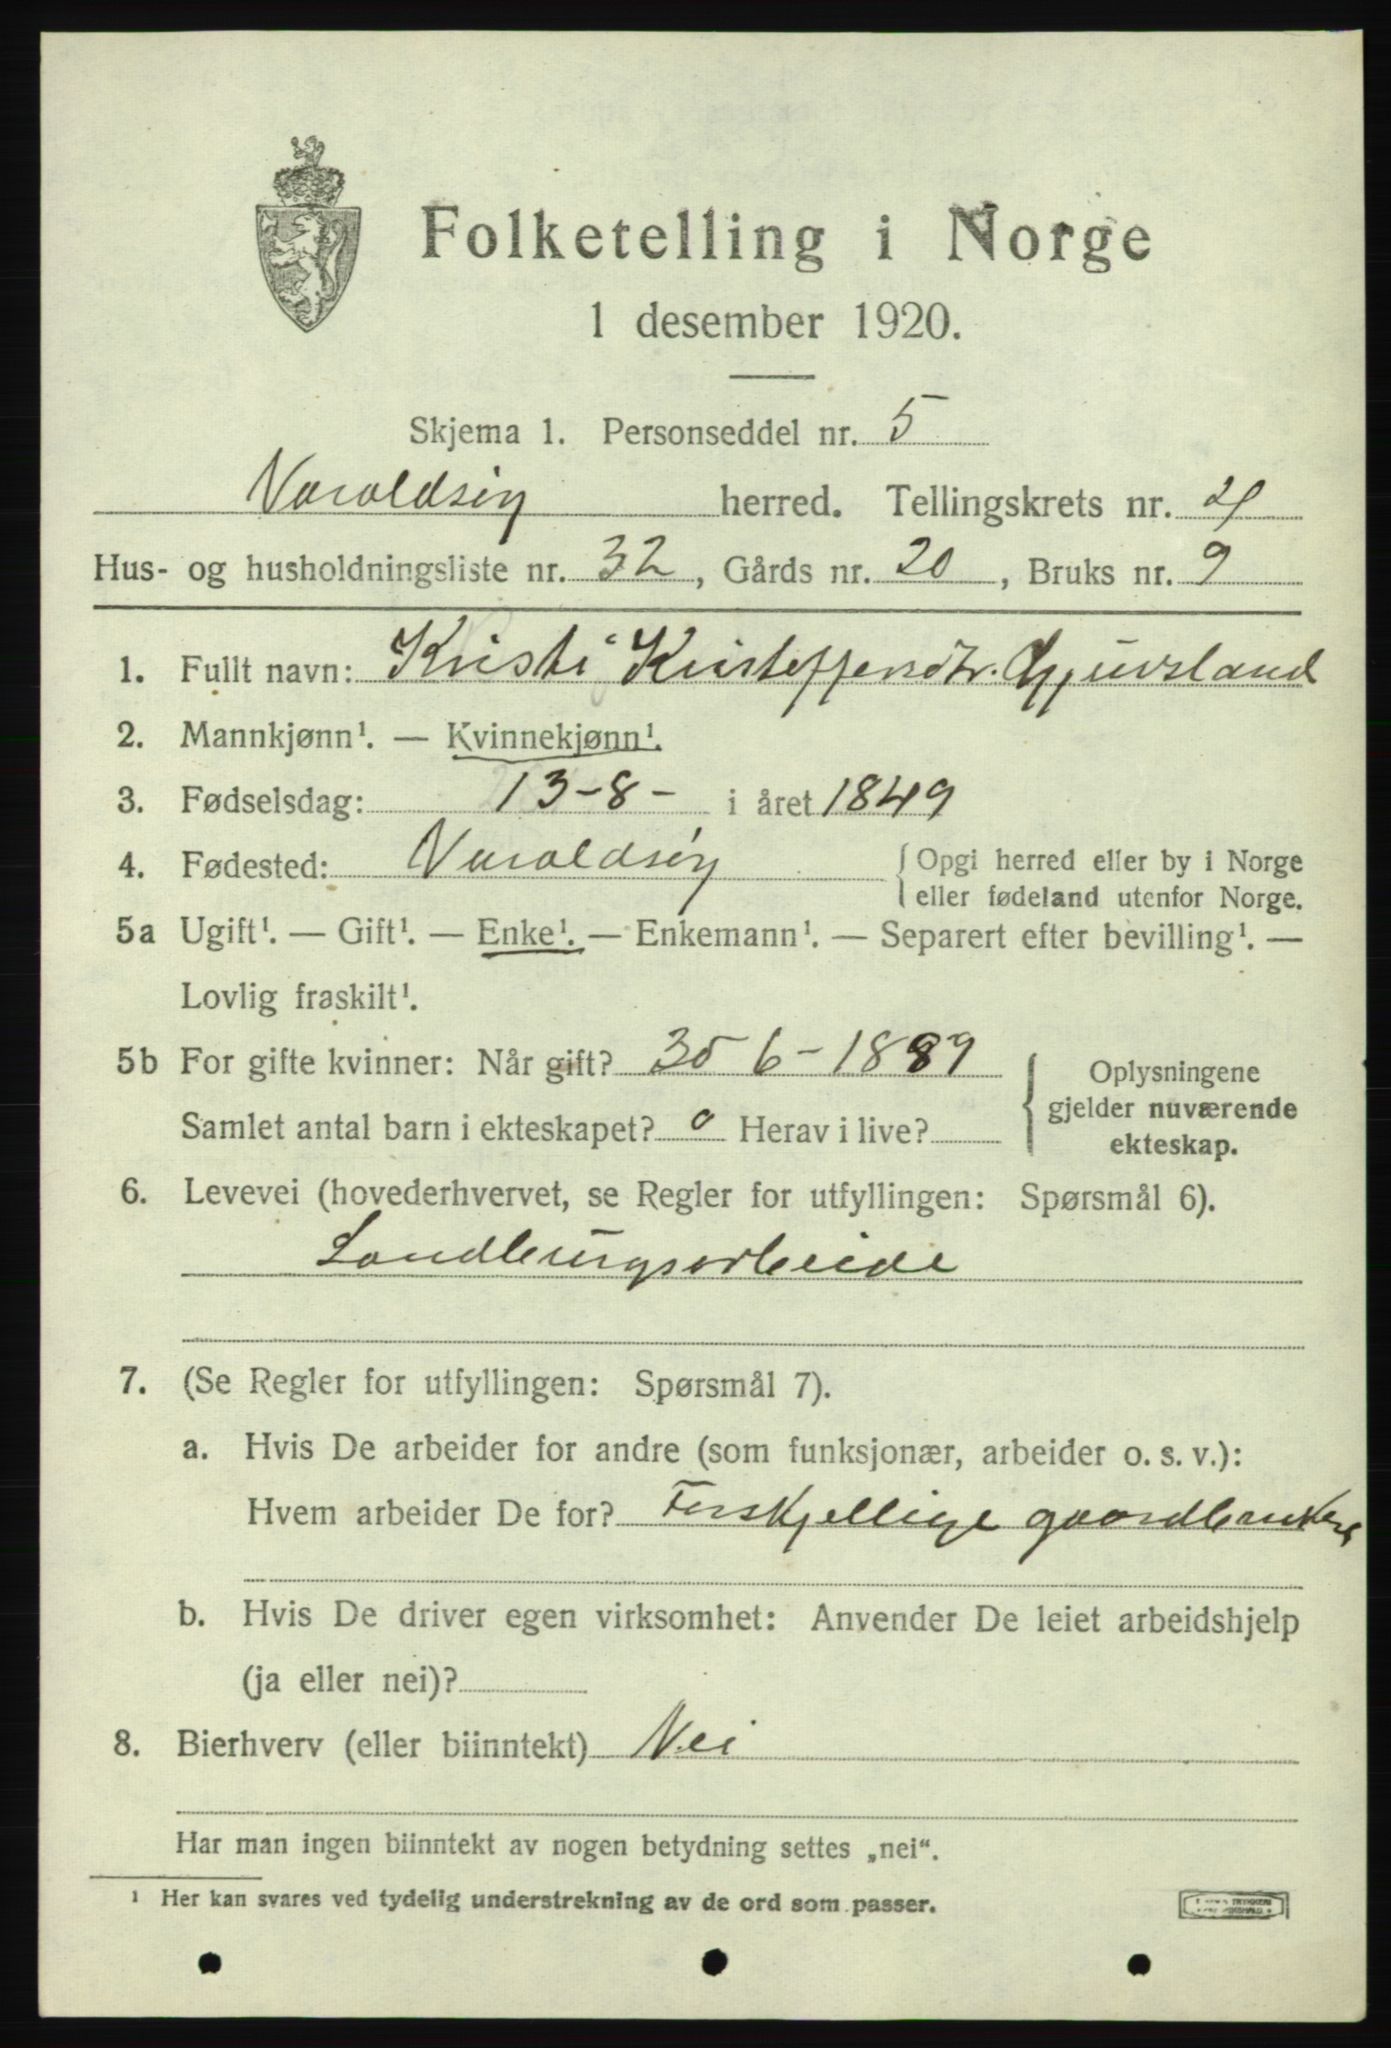 Folketelling i Norge
1 desember 1920.
Skjema 1. Personseddel nr. 5
Varaldsøy herred. Tellingskrets nr. 4
Hus- og husholdningsliste nr. 32, Gårds nr. 20, Bruks nr. 9
1. Fullt navn: Kristi Kristoffersdtr. Gjuvsland
2. Mannkjønn¹. — Kvinnekjønn¹.
3. Fødselsdag: 13-8- i året 1849
4. Fødested: Varaldsøy { Opgi herred eller by i Norge
eller fødeland utenfor Norge.
5a Ugift¹. — Gift¹. — Enke¹. — Enkemann¹. — Separert efter bevilling¹. —
Lovlig fraskilt¹.
5b For gifte kvinner: Når gift? 30 6-1889
Samlet antal barn i ekteskapet? 0 Herav i live?
{ Oplysningene
gjelder nuværende
ekteskap.
6. Levevei (hovederhvervet, se Regler for utfyllingen: Spørsmål 6).
Landbrugsarbeide
7. (Se Regler for utfyllingen: Spørsmål 7).
a. Hvis De arbeider for andre (som funksjonær, arbeider o. s. v.):
Hvem arbeider De for? Forskjellige gaardbrukere
b. Hvis De driver egen virksomhet: Anvender De leiet arbeidshjelp
(ja eller nei)?
8. Bierhverv (eller biinntekt) Nei
Har man ingen biinntekt av nogen betydning settes „nei“.
¹ Her kan svares ved tydelig understrekning av de ord som passer.